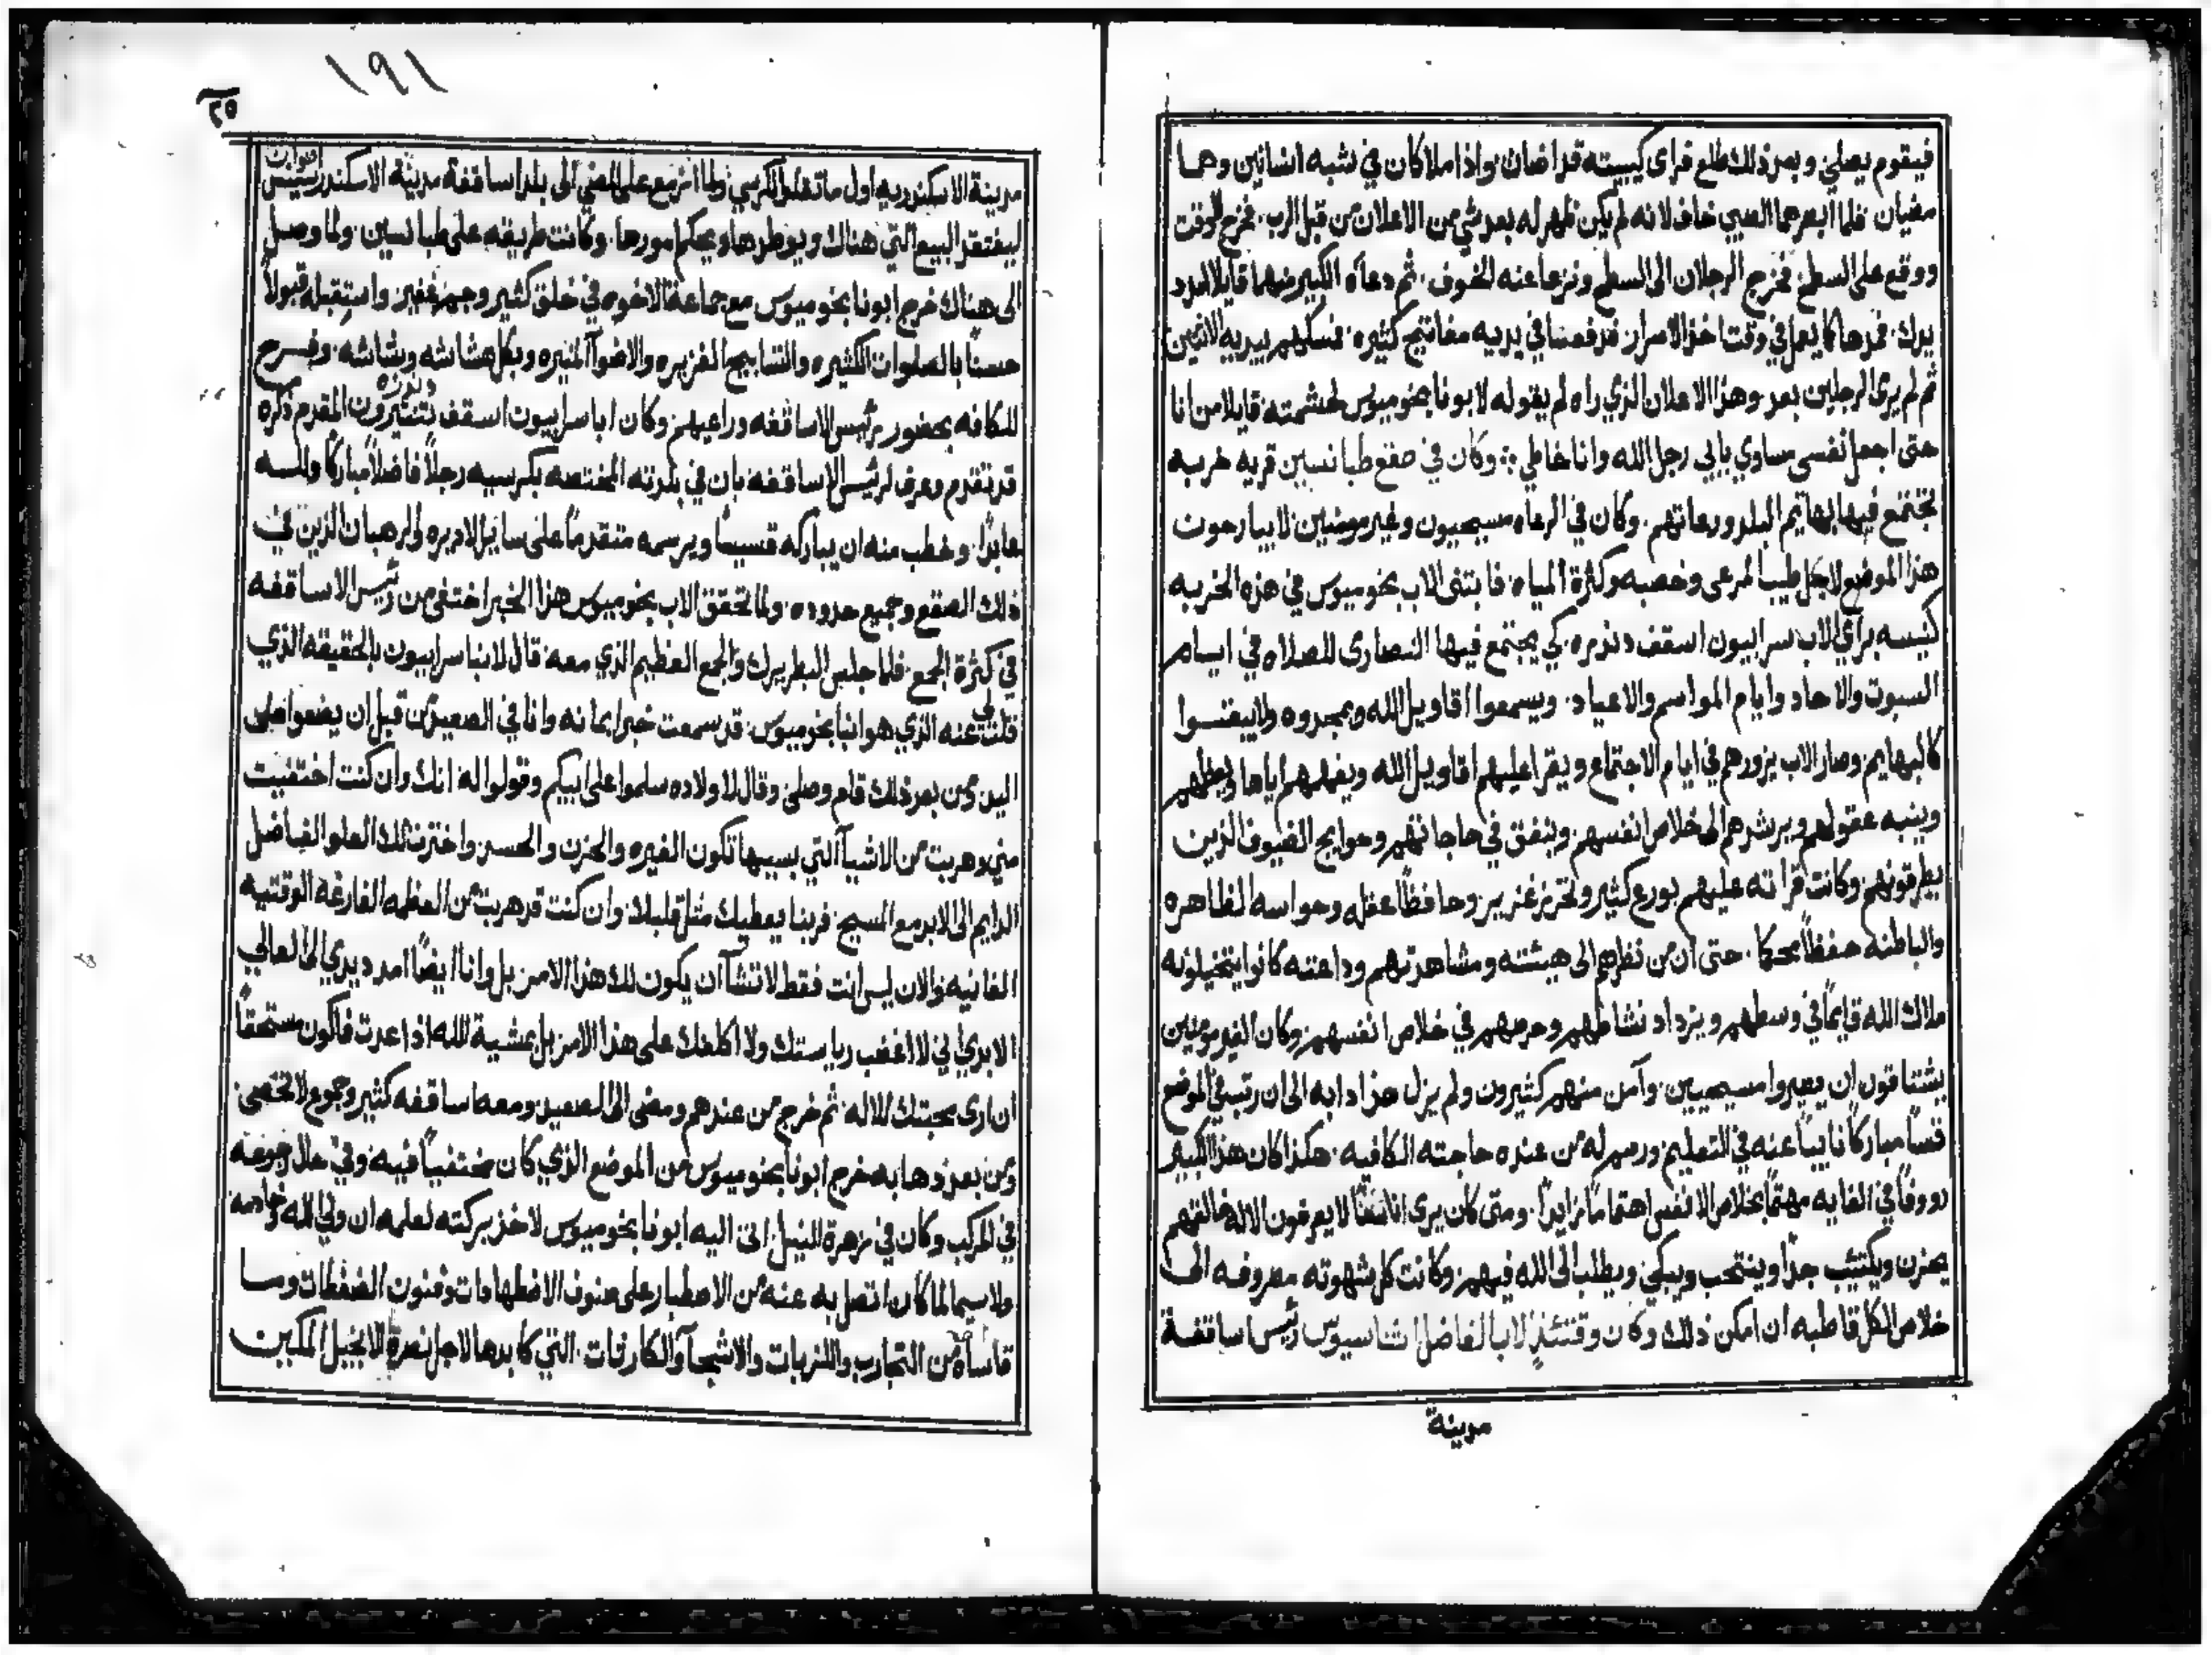 فيقوم يصلي وبعد ذلك طلع فراى كبيسته قد اضات واذا ملاكان في شبه انسانين وهما
مضيان فلما ابصرهما الصبي خاف لانه لم يكن ظهر له بعد شي من الاعلان من قبل الرب فخرج للوقت
ووقع على السطح فخرج الرجلان الى السطح ونزعا عنه الخوف ثم دعاه الكبير منهما قايلا امدد
يدك فمدها كما يعمل في وقت اخذ الاسرار فدفعنا في يديه مفاتيح كثيره فمسكهم بيديه الاثنين
ثم لم يرى الرجلين بعد وهذا الاعلان الذي راه لم يقوله لابونا بخوميوس لحشمته قايلا من انا
حتى اجعل نفسى مساوي بابي رجل الله وانا خاطي وكان في صقع طبانسين قريه خربه
تجتمع فيها بهايم البلد ورعاتهم وكان في الرعاه مسيحيون وغير مومنين لايبارحوت
هذا الموضع لاجل طيب المرعى وخصبه وكثرة المياه فابتنى الاب بخوميوس في هذه الخربه
كنيسه براي الاب سرابيون اسقف دنزره كي يجتمع فيها النصارى للصلاه في ايام
السبوت والاحاد وايام المواسم والاعياد ويسمعوا اقاويل الله ويمجدوه ولا يبقنوا
كالبهايم وصار الاب يزورهم في ايام الاجتماع ويقرا عليهم اقاويل الله ويفهمهم اياها ويعظهم
وينبه عقولهم ويرشدهم الى خلاص انفسهم وينفق في حاجاتهم وحوايج الضيوف الذين
يطرقونهم وكانت قراته عليهم بورع كثير وتحرز غزير وحافظًا عقله وحواسه الظاهره
والباطنه حفظًا محكما حتى ان من نظرهم الى هيئته ومشاهدتهم وداعته كانوا يتخيلونه
ملاك الله قايمًا في وسطهم ويزداد نشاطهم وحرصهم في خلاص انفسهم وكان الغير مومنين
يشتاقون ان يصيروا مسيحيين وآمن منهم كثيرون ولم يزل هذا دابه الى ان رتب في الموضع
قسًا مباركًا نايبًا عنه في التعليم ورسم له من عنده حاجته الكافيه هكذا كان هذا الكبير
رووفًا في الغايه مهتمًا بخلاص الانفس اهتمامًا زايدًا ومتى كان يرى اناسًا لا يعرفون الاله خالقهم
يحزن ويكتيب جدًا وينتحب ويبكي ويطلب الى الله فيهم وكانت كل شهوته مصروفه الى
خلاص الكل قاطبه ان امكن ذلك وكان وقتئذٍ الاب الفاضل اثناسيوس رئيس اساقفة
مدينة
١٩١
٢٥
مدينة الاسكندريه اول ما تقلد الكرسي ولما ازمع على المضي الى بلد اساقفة مدينة الاسكندر
ليفتقد البيع التي هناك ويوطدها ويحكم امورها وكانت طريقه على طبانسين ولما وصل
الى هناك خرج ابونا بخوميوس مع جماعة الاخوه في خلق كثير وجمع غفير واستقبله قبولاً
حسنًا بالصلوات الكثيره والتسابيح الغزيره والاضوآ المنيره وبكل هشاشه وبشاشه وفرح
دنزره
للكافه بحضور رئيس الاساقفه وراعيهم وكان ابا سرابيون اسقف تنتيرون المقدم ذكره
قد تقدم وعرف لرئيس الاساقفه بان في بلدته المختصه بكرسيه رجلاً فاضلاً مباركًا ولله
عابدًا وخطب منه ان يباركه قسيسًا ويرسمه متقدمًا على ساير الاديره والرهبان الذين في
ذلك الصقع وجميع حدوده ولما تحقق الاب بخوميوس هذا الخبر اختفى من رئيس الاساقفه
في كثرة الجمع فلما جلس البطريرك والجمع العظيم الذي معه قال لانبا سرابيون بالحقيقه الذي
قلت لي عنه الذي هو انبا بخوميوس قد سمعت خبر ايمانه وانا في الصعيد من قبل ان يضعوا على
اليد ومن بعد ذلك قام وصلى وقال لاولاده سلموا على ابيكم وقولوا له انك وان كنت اختفيت
مني وهربت من الاشيآ التي بسببها تكون الغيره والحزن والحسد واخترت لك العلو الفاضل
الدايم الى الابد مع المسيح فربنا يعطيك مثل قلبك وان كنت قد هربت من العظمه الفارغه الوقتيه
الفانيه والان ليس انت فقط لا تشآ ان يكون لك هذا الامر بل وانا ايضًا امد ديدي الى العالي
الابدي اني لا اغضب رياستك ولا اكلفك على هذا الامر بل بمشية الله اذا عدت فاكون مستحقًا
ان ارى محبتك للاله ثم خرج من عندهم ومضى الى الصعيد ومعه اساقفه كثير وجموع لا تحصى
ومن بعد ذهابه خرج ابونا بخوميوس من الموضع الذي كان مختفيًا فيه وفي حال رجوعه
في المركب وكان في زهرة النيل اتى اليه ابونا بخوميوس لاخذ بركته لعلمه ان ولي الله وخادمه
ولا سيما لما كان اتصل به عنه من الاصطبار على صنوف الاضطهادات وفنون الضغطات وما
قاساه من التجارب والكربات والاشجآ والكارثات التي كابدها لاجل نصرة الانجيل